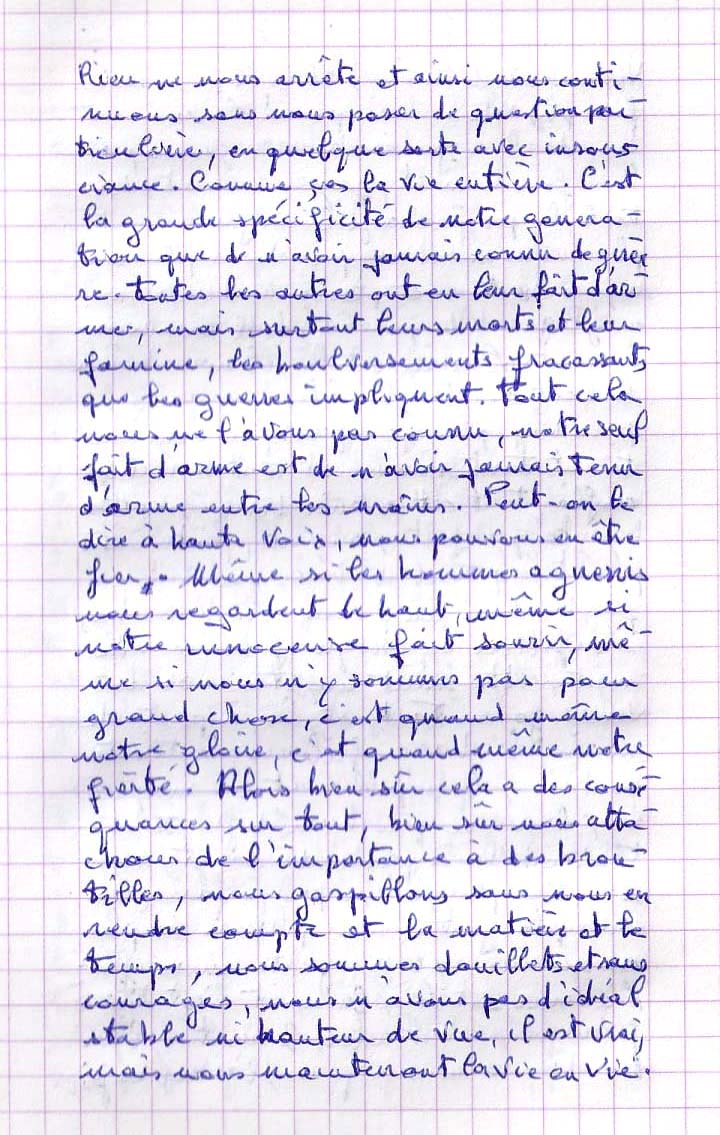 Rien ne nous arrête et ainsi nous conti-
nuons sans nous poser de question par-
ticulière, en quelque sorte avec insous
ciance. Comme ças la vie entière. C'est
la grande spécificité de notre généra-
tion que de n'avoir jamais connu de guer
re. Toutes les autres ont eu leur fait d'ar-
me, mais surtout leurs morts et leur
famine, les boulversements fracassants
que les guerres impliquent. Tout cela
nous ne l'avons pas connu, notre seul
fait d'arme est de n'avoir jamais tenu
d'arme entre les mains. Peut-on le
dire à haute voix, nous pouvons en être
fier. Même si les hommes aguerris
nous regardent de haut, même si
notre innocense fait sourir, mê-
me si nous n'y sommes pas pour
grand chose, c'est quand même
notre gloire, c'est quand même notre
fierté. Alors bien sûr cela a des consé-
quances sur tout, bien sûr nous atta-
chons de l'importance à des brou-
tilles, nous gaspillons sans nous en
rendre compte et la matière et le
temps, nous sommes douillets et sans
courages, nous n'avons pas d'idéal
stable ni hauteur de vue, il est vrai,
mais nous maintenont la vie en vie.